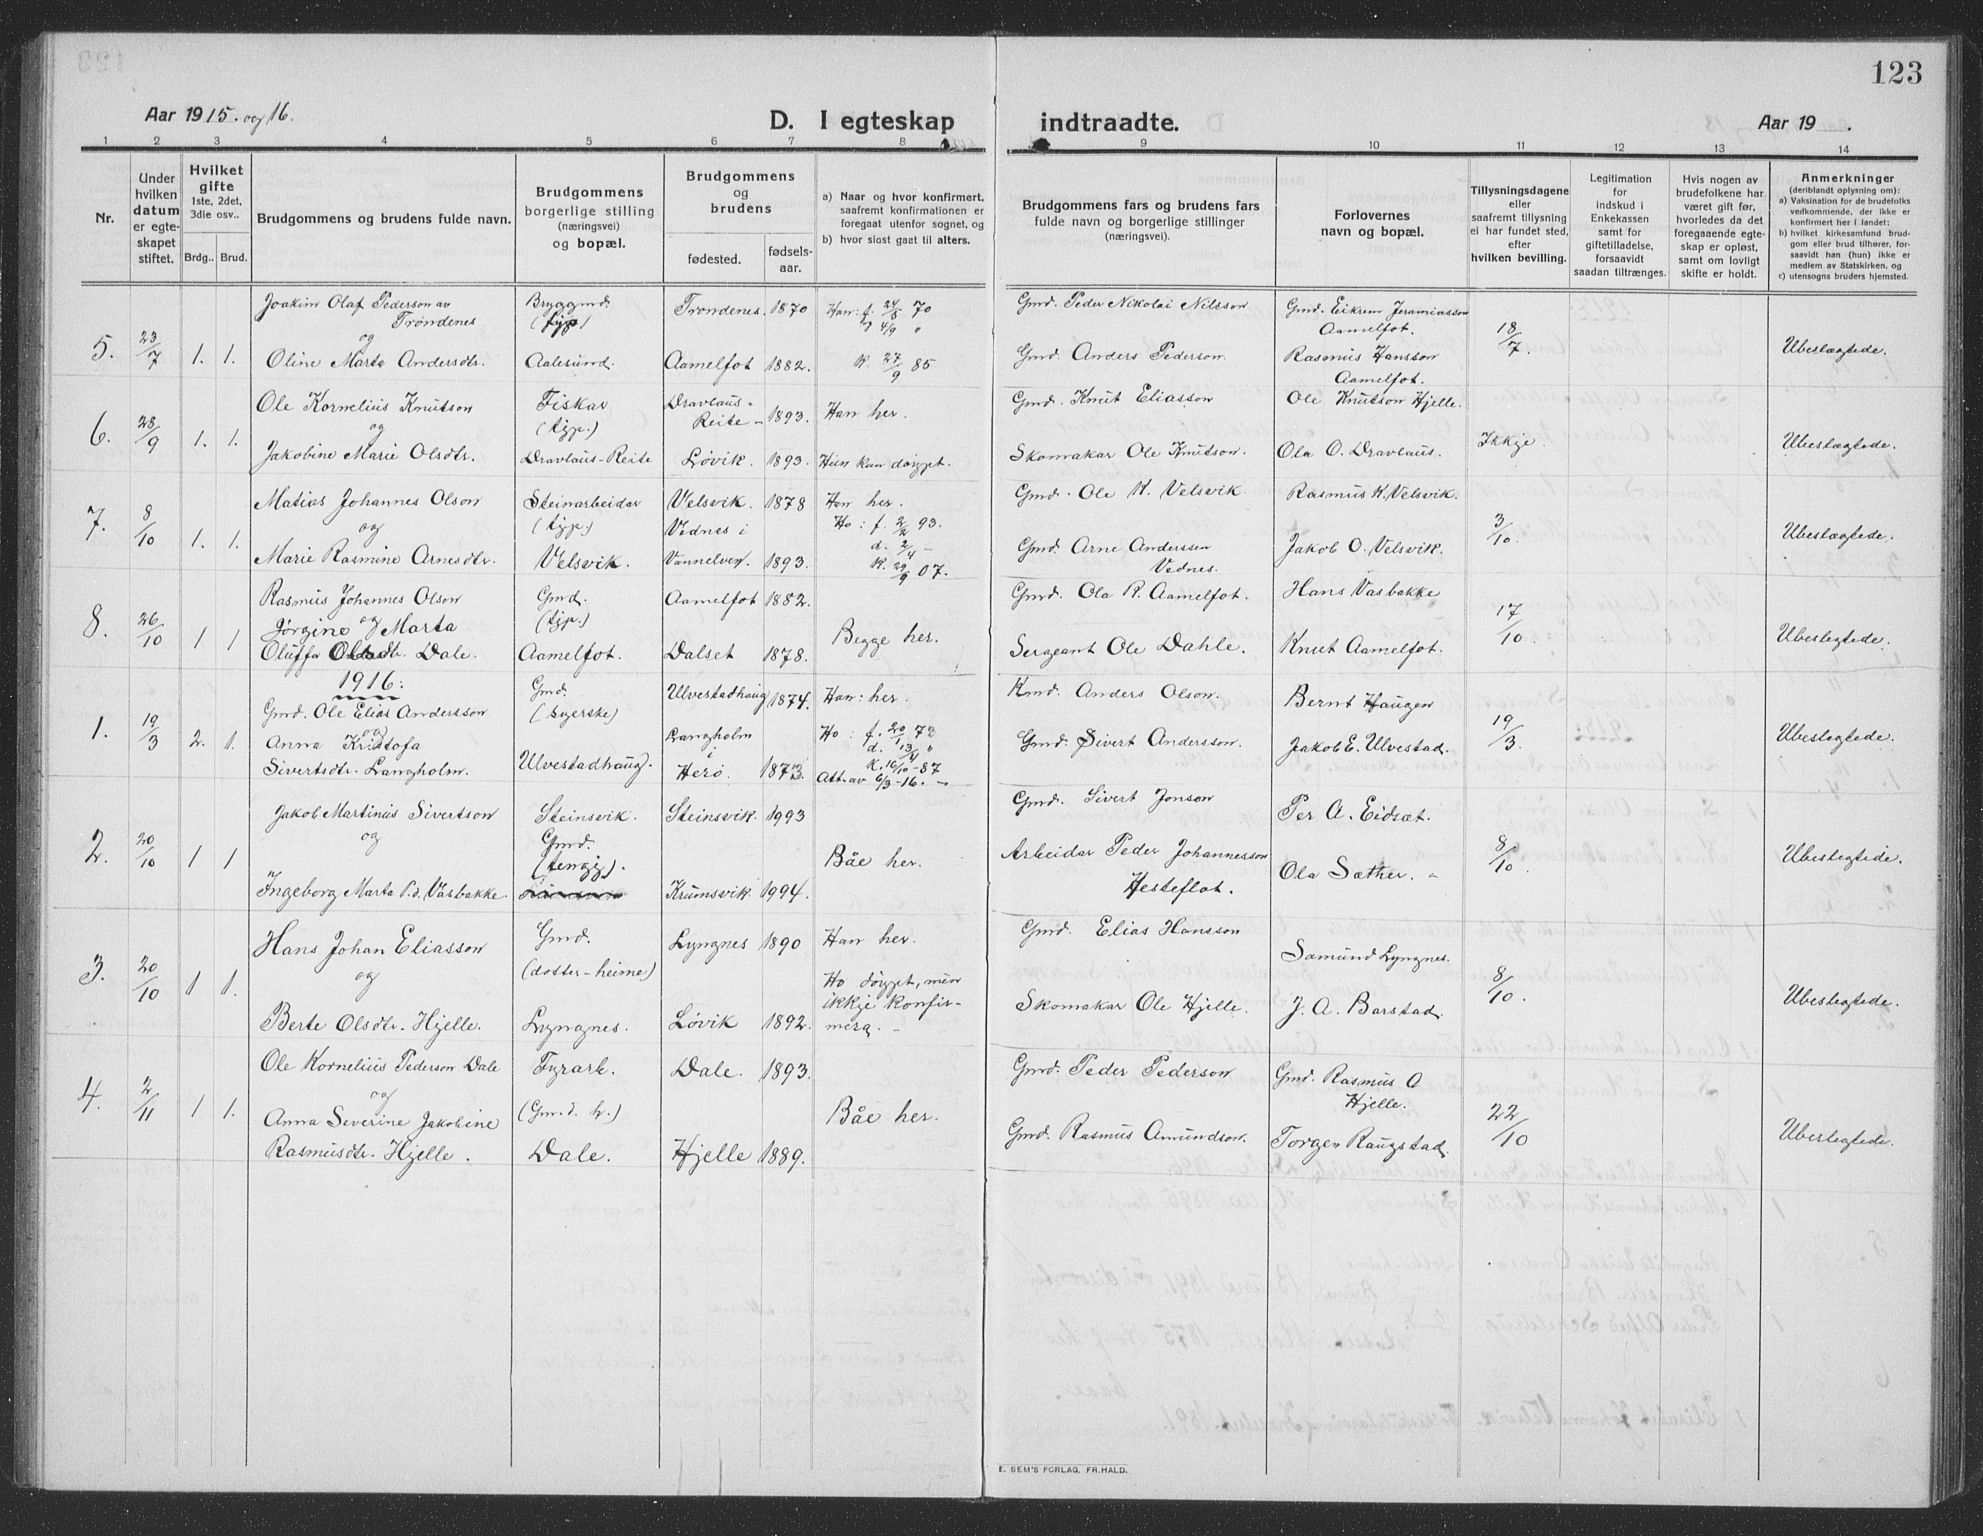 123
Aar 1915. og 16.
D. I egteskap indtraadte.
Aar 19 .
1 2 3 4 5 6 7 8 9 10 11 12 13 14
Nr.
Under hvilken datum er egteskapet stiftet.
Hvilket gifte 1ste, 2det, 3die osv..
Brdg.. Brud.
Brudgommens og brudens fulde navn.
Brudgommens borgerlige stilling (næringsvei) og bopæl.
Brudgommens og brudens
fødested. fødselsaar.
a) Naar og hvor konfirmert, saafremt konfirmationen er foregaat utenfor sognet, og
b) hvor sidst gaat til alters.
Brudgommens fars og brudens fars fulde navn og borgerlige stillinger (næringsvei).
Forlovernes navn og bopæl.
Tillysningsdagene eller saafremt tillysning ei har fundet sted, efter hvilken bevilling.
Legitimation for indskud i Enkekassen samt for giftetilladelse, forsaavidt saadan tiltrænges.
Hvis nogen av brudefolkene har været gift før, hvorledes da det foregaaende egteskap er opløst, samt om lovligt skifte er holdt.
Anmerkninger (deriblandt oplysning om): a) Vaksination for de brudefolks vedkommende, der ikke er konfirmert her i landet; b) hvilket kirkesamfund brudgom eller brud tilhører, forsaavidt han (hun) ikke er medlem av Statskirken, og c) utensogns bruders hjemsted.
5. 23/7 1. 1.
Joakim Olaf Pederson av Trondenes
og
Oline Marta Andersdtr.
Bryggmd.
Aalesund.
Trondenes. 1870
Aamelfot 1882.
Han: f. 24/5 70
d 4/9 "
k. 27/9 85
Gmd. Peder Nikolai Nilsson
Gmd. Anders Pederson.
Gmd. Eikrem Jeramiasson Aamelfot.
Rasmus Hansson Aamelfot.
18/7.
Ubeslægtede.
6. 28/9 1. 1.
Ole Kornelius Knutson
og
Jakobine Marie Olsdtr.
Fiskar
Dravlaus-Reite
Dravlaus-Reite - 1893.
Løvik. 1893.
Han her.
Hun kun døypt.
Gmd. Knut Eliasson
Skomakar Ole Knutson.
Ole Knutson Hjelle.
Ola O. Dravlaus.
Ikkje.
Ubeslægtede.
7. 8/10 1. 1.
Matias Johannes Olson
og
Marie Rasmine Arnesdtr.
Steinarbeidar
Velsvik.
Velsvik 1878
Vednes i Vannelven. 1893.
Han her.
Ho: f. 2/2 93.
d. 2/4 -
k. 29/9 07.
Gmd. Ole K. Velsvik
Gmd. Arne Anderssen Vednes.
Rasmus K. Velsvik.
Jakob O. Velsvik.
3/10.
Ubeslægtede.
8. 26/10 1 1
Rasmus Johannes Olson
og
Jørgine Marta
Oluffa Olsdtr. Dale.
Gmd.
Aamelfot.
Aamelfot 1882.
Dalset 1878.
Begge her.
Gmd. Ola R. Aamelfot.
Sergeant Ole Dahle.
Hans Vasbakke
Knut Aamelfot.
17/10.
Ubeslegtede.
1916:
1. 19/3 2. 1.
Gmd. Ole Elias Andersson
og
Anna Kristofa
Sivertsdtr. Langholm.
Gmd.
Ulvestadhaug.
Ulvestadhaug 1874.
Langholm i Herø. 1873.
Han: her.
Ho: f. 20/1 73
d. 13/4 "
k. 16/10-87
Att. av 6/3-16. -
Kmd. Anders Olson.
Gmd. Sivert Andersson.
Bernt Haugen
Jakob E. Ulvestad.
19/3.
Ubeslegtede.
2. 20/10 1 1
Jakob Martinus Sivertson
og
Ingeborg Marta P.d. Vasbakke.
Steinsvik.
Gmd.
Steinsvik. 1993
Krumsvik. 1994.
Båe her.
Gmd. Sivert Jonson
Arbeidar Peder Johannesson
Hesteflot.
Per A. Eidsæt.
Ola Sæther.
8/10.
Ubeslegtede.
3. 20/10 1 1.
Hans Johan Eliasson
og
Berte Olsdtr. Hjelle.
Gmd.
Lyngnes.
Lyngnes 1890
Løvik 1892.
Han her.
Ho døypt, men ikkje konfirmera. -
Gmd. Elias Hansson
Skomakar Ole Hjelle.
Samund Lyngnes.
J. A. Barstad.
8/10.
Ubeslegtede.
4. 2/11 1 1.
Ole Kornelius Pederson Dale
og
Anna Severine Jakobine
Rasmusdtr. Hjelle.
Fyrarb.
Dale.
Dale. 1893.
Hjelle 1889.
Båe her.
Gmd. Peder Pederson
Gmd. Rasmus Amundson.
Gmd. Rasmus O Hjelle.
Torgen Raugstad.
22/10
Ubeslegtede.
E. SEM'S FORLAG, FR.HALD.